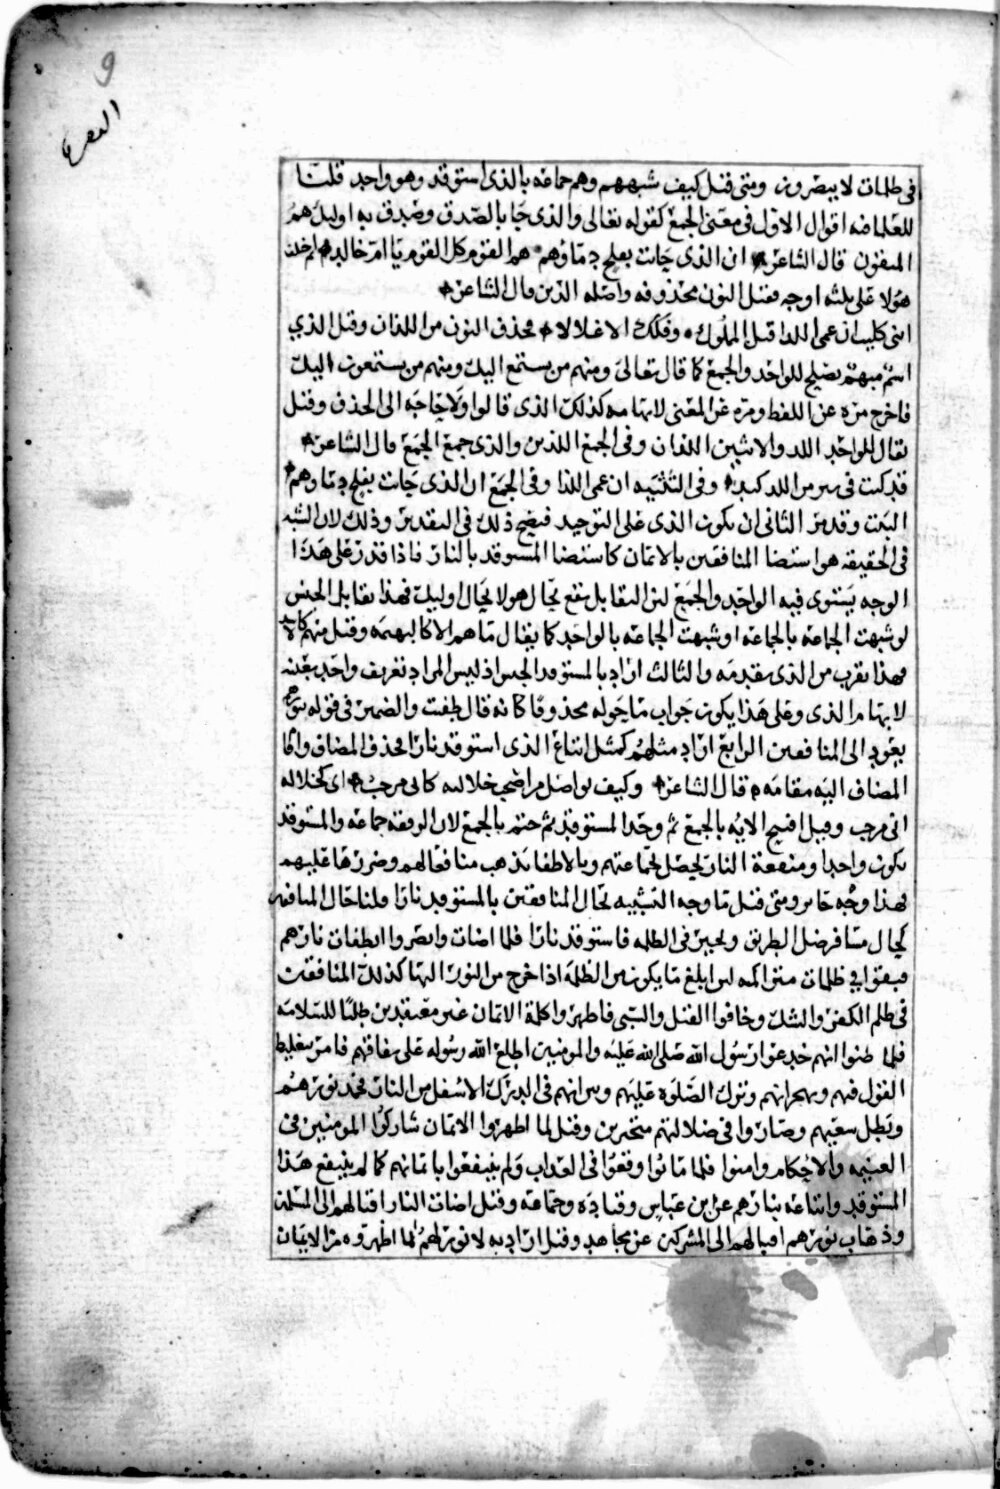 في ظلمات لا يبصرون ومتى قيل كيف شبههم وهم جماعه بالذي استوقد وهو واحد قلنا
للعلما فيه اقوال الاول في معنى الجمع كقوله تعالى والذي جا بالصدق وصدق به اوليك هم
المتقون قال الشاعر ان الذي جات بفلج دماوهم هم القوم كل القوم يا ام خالد ثم اختلف
هولا على ثلثه اوجه فقيل النون محذوفه واصله الذين قال الشاعر
ابني كليب ان عمي اللذا قتلا الملوك وفككا الاغلالا فحذف النون من اللذان وقيل الذي
اسم مبهم يصلح للواحد والجمع كما قال تعالى ومنهم من يستمع اليك ومنهم من يستمعون اليك
فاخرج مره عن اللفظ ومره عن المعنى لابهامه كذلك الذي قالوا ولا حاجه الى الحذف وقيل
يقال للواحد اللذ والاثنين اللذان وفي الجمع اللذين والذي جمع الجمع قال الشاعر
وفي التثنيه ان عمي اللذا وفي الجمع ان الذي جات بفلج دماوهم
البيت وقد مر الثاني ان يكون الذي على التوحيد فيصح ذلك في التقدير وذلك لان الشبه
في الحقيقه هو استضا المنافقين بالايمان كاستضا المستوقد بالنار فاذا قدر على هذا
الوجه يستوي فيه الواحد والجمع لان التقابل يقع بحال هولا بحال اوليك فهذا يقابل الجنس
لو شبهت الجماعه بالجماعه او شبهت الجماعه بالواحد كما يقال ما هم الا كالبهيمه وقيل منهم كالاسد
فهذا يقرب من الذي تقدمه والثالث اراد بالمستوقد الجنس اذ ليس المراد تعريف واحد بعينه
لابهام الذي وعلى هذا يكون جواب ما حوله محذوفا كانه قال طفيت والضمير في قوله بنورهم
يعود الى المنافقين الرابع اراد مثلهم كمثل اتباع الذي استوقد نارا فحذف المضاف واقام
المضاف اليه مقامه قال الشاعر وكيف تواصل من اضحى خلالته كابي مرحب اي كخلاله
ابي مرحب وقيل افتتح الايه بالجمع ثم وحد المستوقد ثم ختم بالجمع لان الرفقه جماعه والمستوقد
يكون واحدا ومنفعة النار يحصل لجماعتهم وبالاطفا يذهب منافعها لهم وضررها عليهم
فهذا وجه خامس ومتى قيل ما وجه التشبيه لحال المنافقين بالمستوقد نارا قلنا حال المنافق
كحال مسافر ضل الطريق وتحير في الظلمه فاستوقد نارا فلما اضات وابصروا انطفات نارهم
فبقوا في ظلمات متراكمه ابلغ ما يكون من الظلمة اذا خرج من النور اليها كذلك المنافقين
في ظلم الكفر والشك وخافوا القتل والسبي فاظهروا كلمة الايمان غير معتقدين طلبا للسلامه
فلما ظنوا انهم خدعوا رسول الله صلى الله عليه والمومنين اطلع الله رسوله على نفاقهم فامر بتغليظ
القول فيهم وبهجرانهم وترك الصلوه عليهم وبين انهم في الدرك الاسفل من النار فخمد نورهم
وبطل سعيهم وصاروا في ضلالتهم متحيرين وقيل لما اظهروا الايمان شاركوا المومنين في
الغنيمه والاحكام وامنوا فلما ماتوا وقعوا في العذاب ولم ينتفعوا بايمانهم كما لم ينتفع هذا
المستوقد واتباعه بنارهم عن ابن عباس وقتاده وجماعه وقيل اضات النار اقبالهم الى المسلمين
وذهاب نورهم اقبالهم الى المشركين عن مجاهد وقيل اراد به لا نور لهم لما اظهروه من الايمان